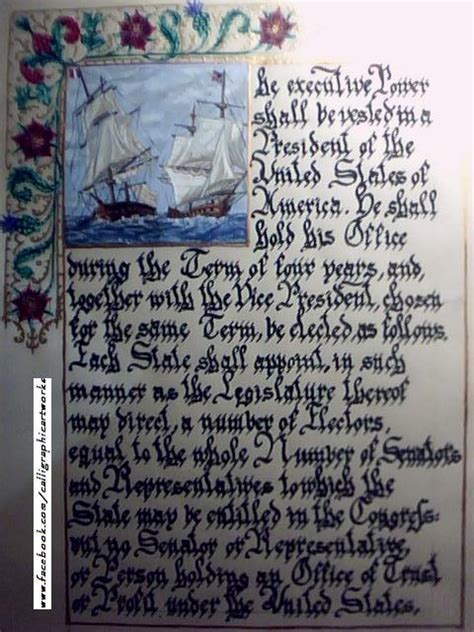 he executive Power
shall be vested in a
President of the
United States of
America. He shall
hold his Office
during the Term of four years, and,
together with the Vice President, chosen
for the same Term, be elected, as follows.
Each State shall appoint, in such
manner as the Legislature thereof
may direct, a number of Electors,
equal to the whole Number of Senators
and Representatives to which the
State may be entitled in the Congress:
but no Senator or Representative,
or Person holding an Office of Trust
or Profit under the United States,
www.facebook.com/calligraphicartworks